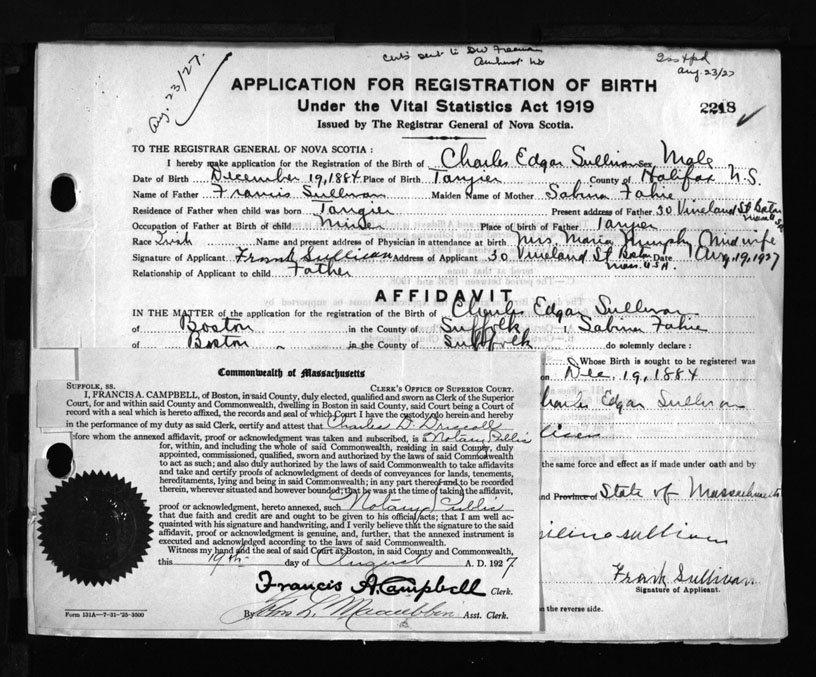 Aug. 23/27.
Certs sent to
Amherst NS
Aug 23/27
APPLICATION FOR REGISTRATION OF BIRTH
Under the Vital Statistics Act 1919
2218
Issued by The Registrar General of Nova Scotia.
TO THE REGISTRAR GENERAL OF NOVA SCOTIA :
I hereby make application for the Registration of the Birth of Charles Edgar Sullivan Sex Male
Date of Birth December 19, 1884 Place of Birth Tangier County of Halifax N.S.
Name of Father Francis Sullivan Maiden Name of Mother Sabina Fahie
Residence of Father when child was born Tangier Present address of Father 30 Vineland St Boston Mass
Occupation of Father at Birth of child Miner Place of birth of Father Tangier
Race Irish Name and present address of Physician in attendance at birth Mrs. Maria Murphy Midwife
Signature of Applicant Frank Sullivan Address of Applicant 30 Vineland St Boston Mass. U.S.A. Date Aug, 19, 1927
Relationship of Applicant to child Father
AFFIDAVIT
IN THE MATTER of the application for the registration of the Birth of Charles Edgar Sullivan
of Boston in the County of Suffolk I, Sabina Fahie
of Boston in the County of Suffolk do solemnly declare :
Whose Birth is sought to be registered was
on Dec. 19, 1884
Charles Edgar Sullivan
the same force and effect as if made under oath and by
and Province of State of Massachusetts
Sullivan
Frank Sullivan
Signature of Applicant.
on the reverse side.
Commonwealth of Massachusetts
SUFFOLK, SS. CLERK'S OFFICE OF SUPERIOR COURT.
I, FRANCIS A. CAMPBELL, of Boston, in said County, duly elected, qualified and sworn as Clerk of the Superior
Court, for and within said County and Commonwealth, dwelling in Boston in said County, said Court being a Court of
record with a seal which is hereto affixed, the records and seal of which Court I have the custody, do herein and hereby
in the performance of my duty as said Clerk, certify and attest that Charles D. Driscoll
before whom the annexed affidavit, proof or acknowledgment was taken and subscribed, is a Notary Public
for, within, and including the whole of said Commonwealth, residing in said County, duly
appointed, commissioned, qualified, sworn and authorized by the laws of said Commonwealth
to act as such; and also duly authorized by the laws of said Commonwealth to take affidavits
and take and certify proofs of acknowledgment of deeds of conveyances for lands, tenements,
hereditaments, lying and being in said Commonwealth; in any part thereof and to be recorded
therein, wherever situated and however bounded; that he was at the time of taking the affidavit,
proof or acknowledgment, hereto annexed, such Notary Public
that due faith and credit are and ought to be given to his official acts; that I am well ac-
quainted with his signature and handwriting, and I verily believe that the signature to the said
affidavit, proof or acknowledgment is genuine, and, further, that the annexed instrument is
executed and acknowledged according to the laws of said Commonwealth.
Witness my hand and the seal of said Court at Boston, in said County and Commonwealth,
this 19th day of August A. D. 1927
Francis A. Campbell Clerk.
By Asst. Clerk.
Form 131A—7-31-'25-3000